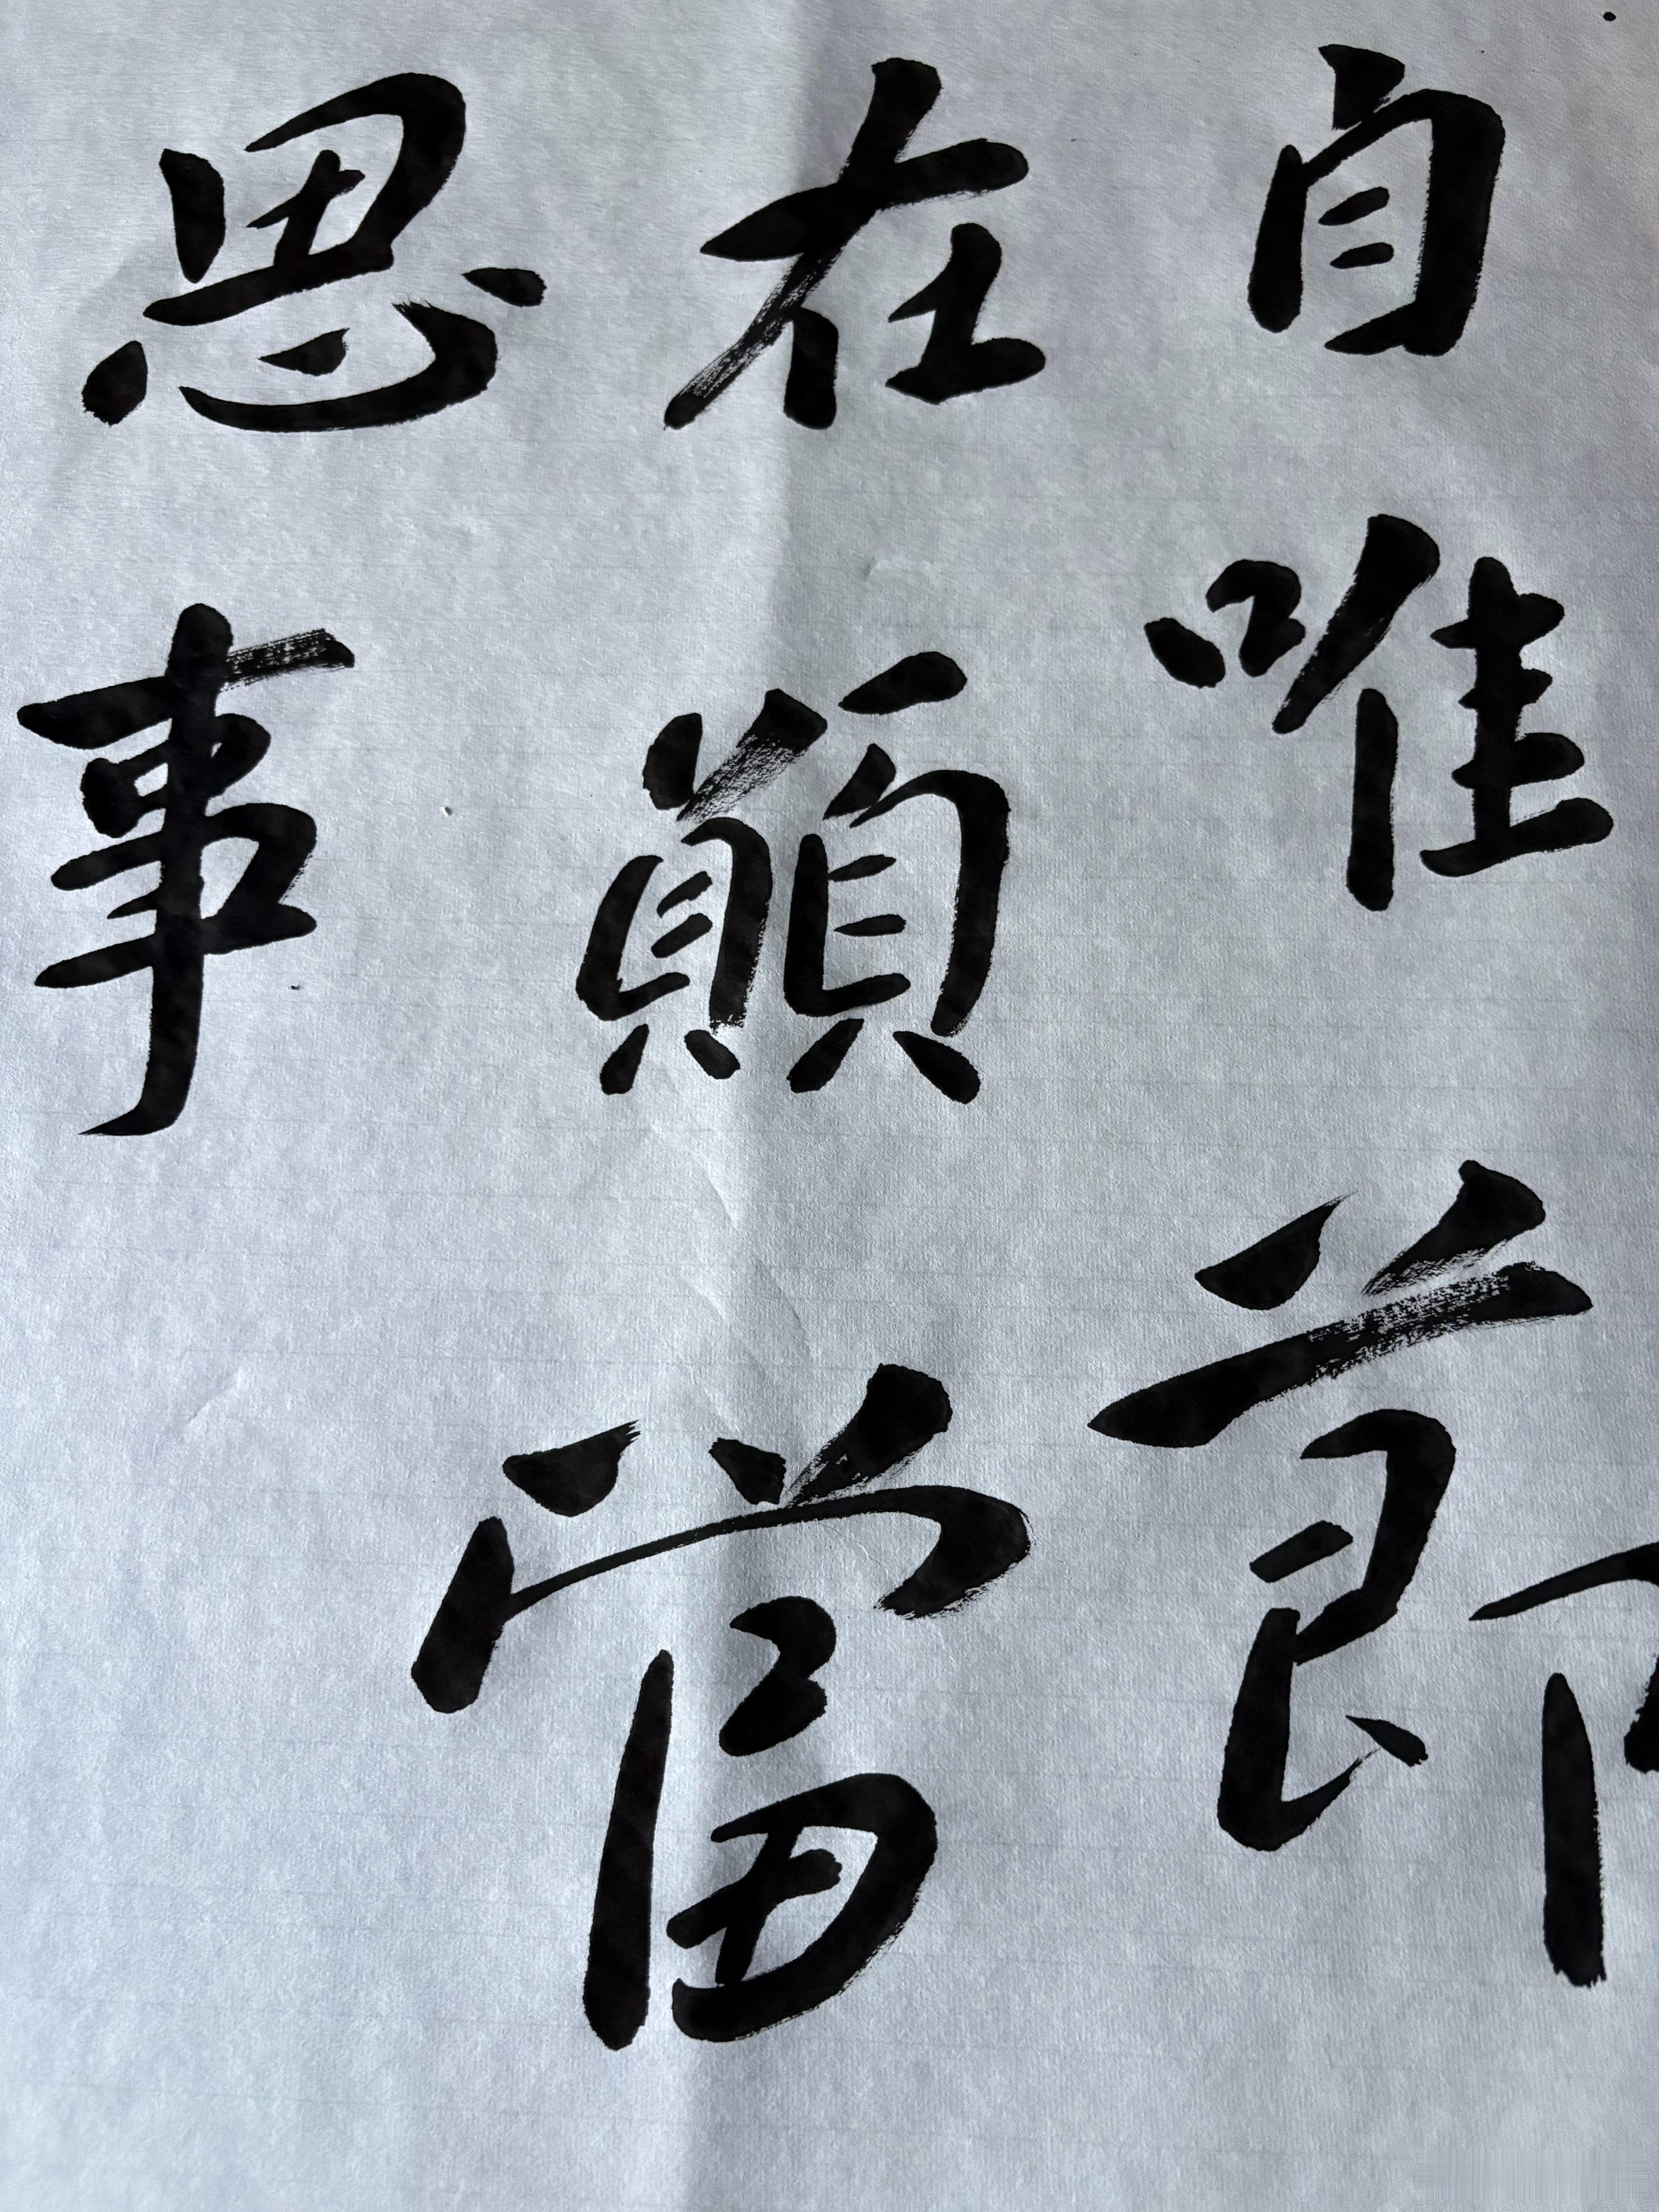 自唯節
在當
思事